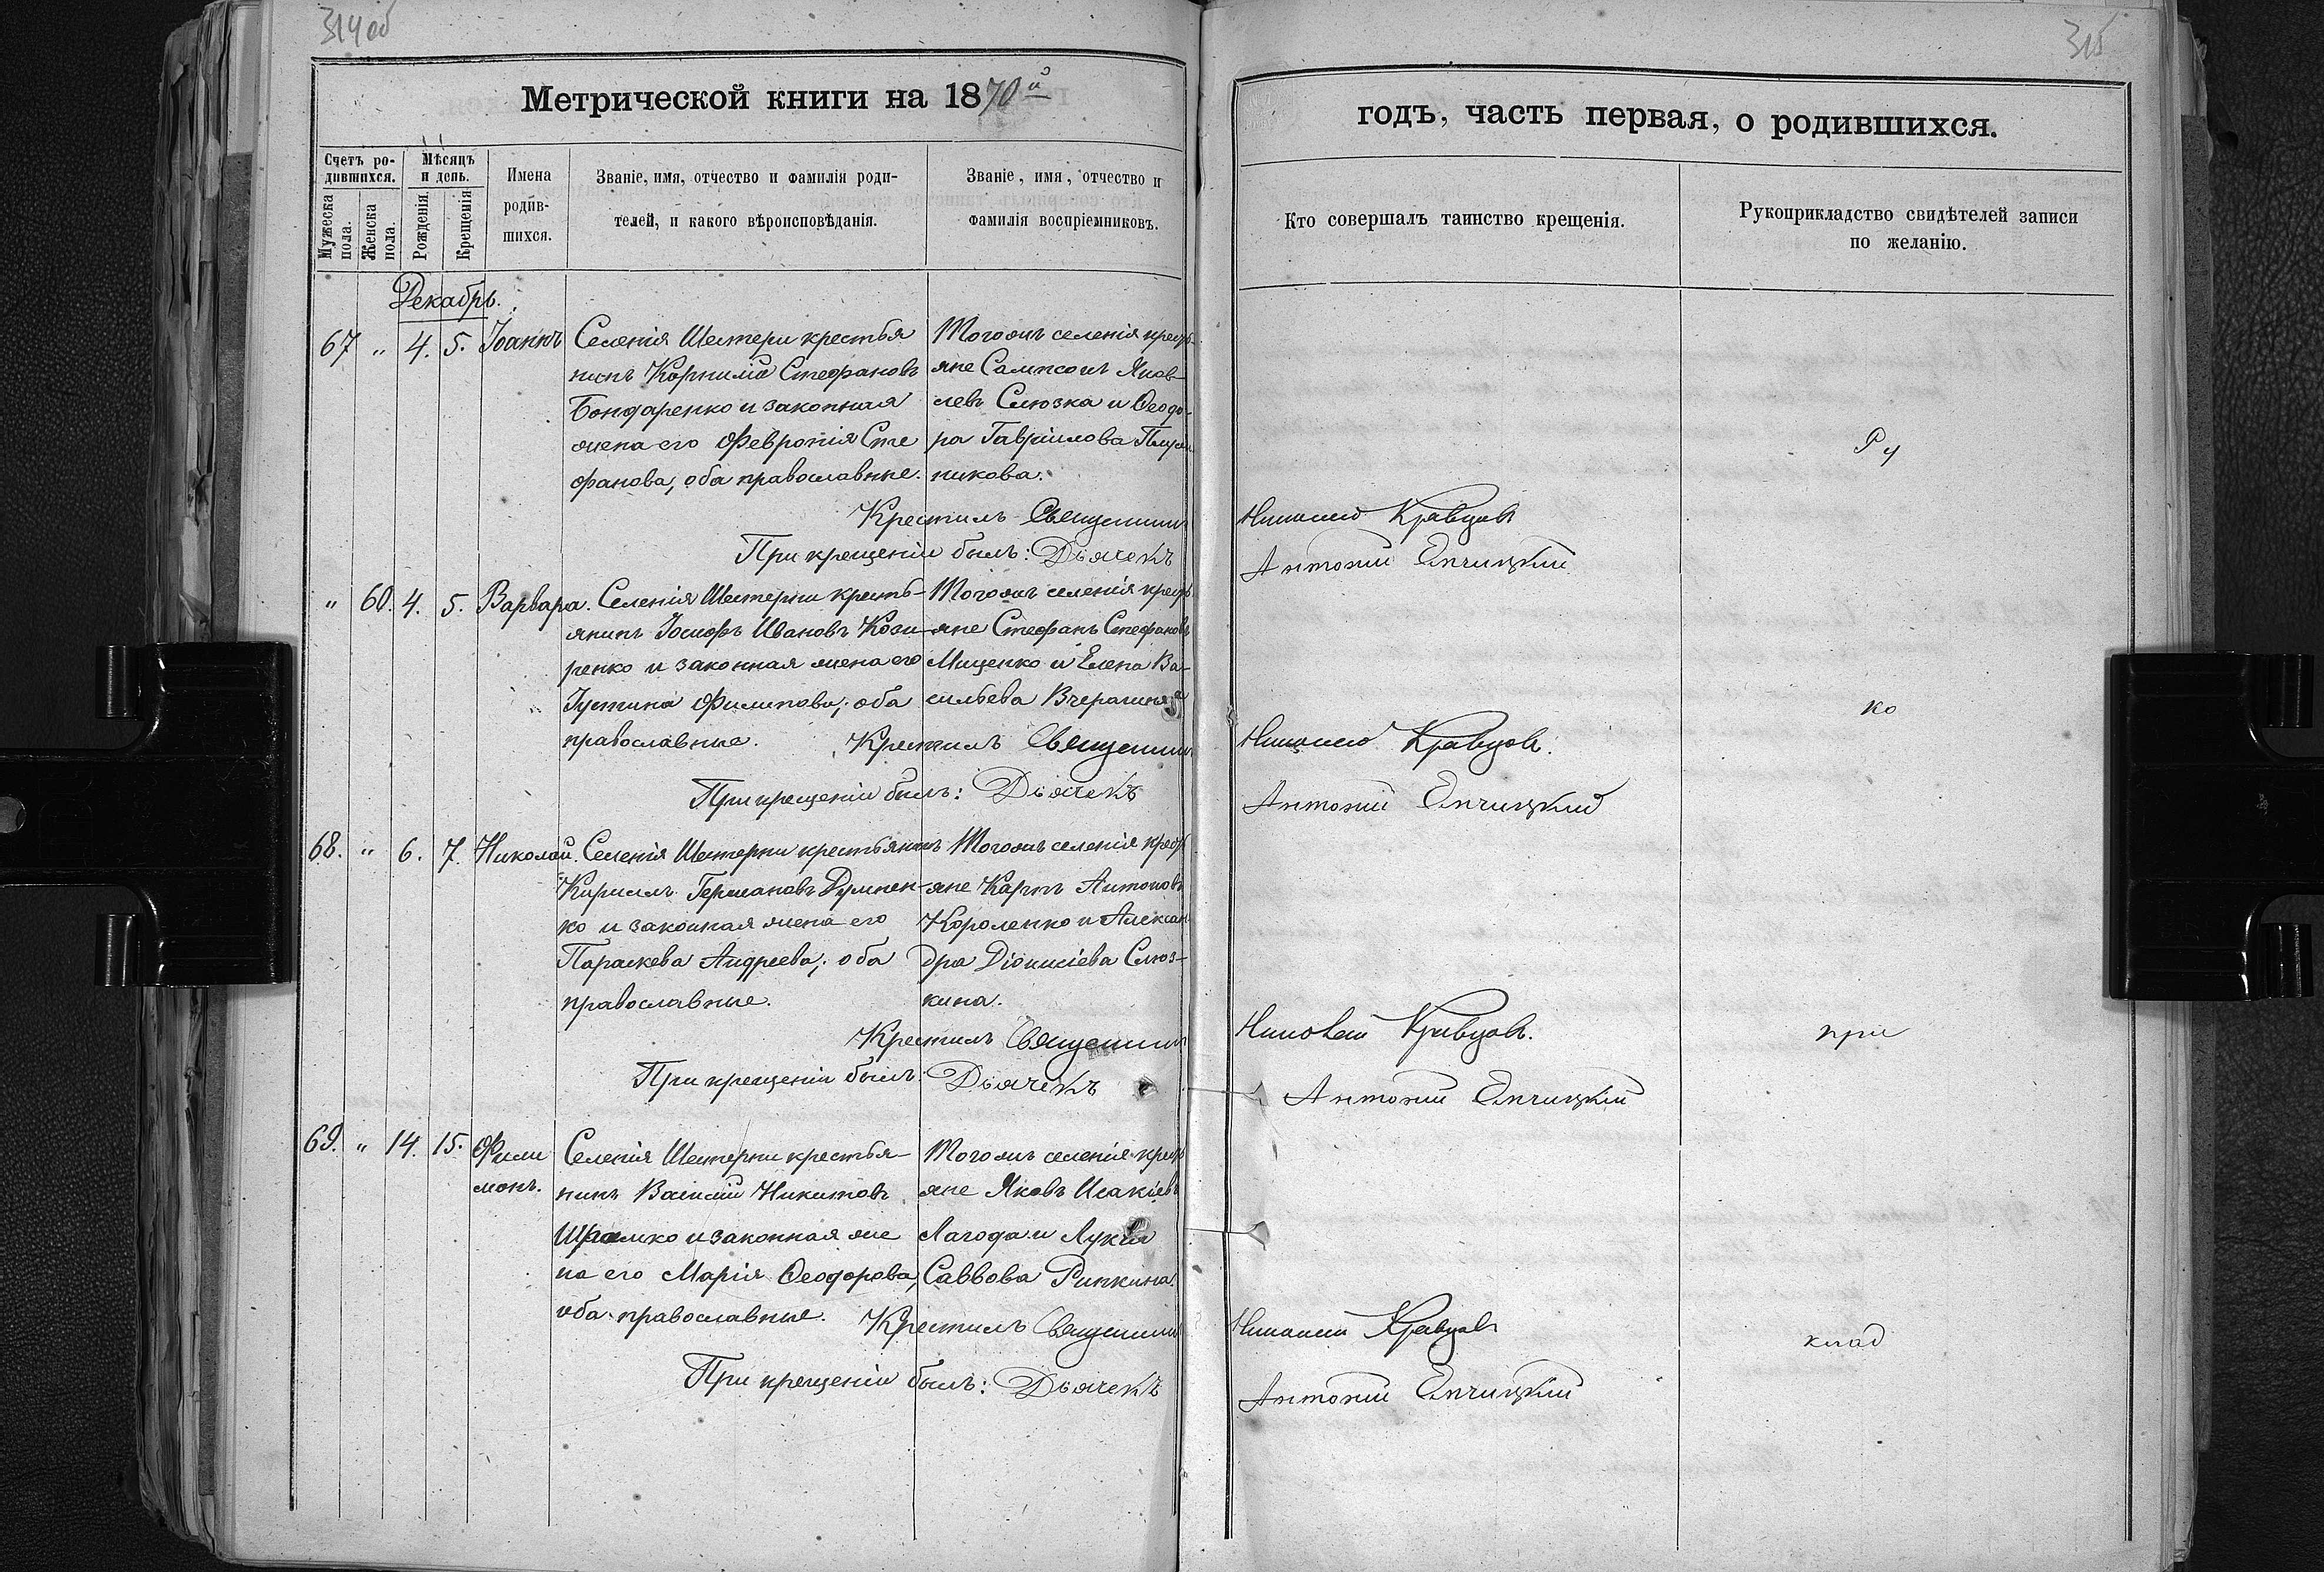 314 об
315
Метрической книги на 1870й
годъ, часть первая, о родившихся.
Счетъ родившихся.
Мужеска пола.
Женска пола.
Мѣсяцъ и день.
Рожденія.
Крещенія
Имена родившихся.
Званіе, имя, отчество и фамилія роди-
телей, и какого вѣроисповѣданія.
Званіе, имя, отчество и
фамилія воспріемниковъ.
Кто совершалъ таинство крещенія.
Рукоприкладство свидѣтелей записи
по желанію.
Декабрь.
67 " 4. 5. Іоаннъ
Селенія Шестери крестья
нинъ Корнилій Стефановъ
Бондаренко и законная
жена его Февронія Сте
фанова, оба православные.
Тогожъ селенія кресть-
яне Сампсонъ Яков-
левъ Слюзка и Ѳеодо-
ра Гавріилова
никова.
Крестилъ Священникъ
Николай Кравцовъ
При крещеніи былъ: Дьячекъ
Антоній
Ру
" 60. 4. 5. Варвара.
Селенія Шестерни кресть-
янинъ Іосифъ Ивановъ Кози-
ренко и законная жена его
Іустина Филипова; оба
православные.
Тогожъ селенія кресть
яне Стефанъ Стефановъ
Мищенко и Елена Ва-
сильева
Крестилъ Священникъ
Николай Кравцовъ.
При крещеніи былъ: Дьячекъ
Антоній
ко
68. " 6. 7. Николай.
Селенія Шестерни крестьянинъ
Кириллъ Германовъ Думен-
ко и законная жена его
Параскева Андреева; оба
православные.
Тогожъ селенія кресть
яне Карпъ Антоновъ
Короленко и Алексан
дра Діонисіева Слюз-
кина.
Крестилъ Священникъ
Николай Кравцовъ.
При крещеніи былъ: Дьячекъ
Антоній
при
69. " 14. 15. Фили
монъ.
Селенія Шестерни крестья-
нинъ Василій Никитовъ
Шрамко и законная же
на его Марія Ѳеодорова,
оба православные.
Тогожъ селенія кресть
яне Яковъ Исакіевъ
Лагода и Лукія
Саввова Рипкина.
Крестилъ Священникъ
Николай Кравцовъ
При крещеніи былъ: Дьячекъ
Антоній
клад